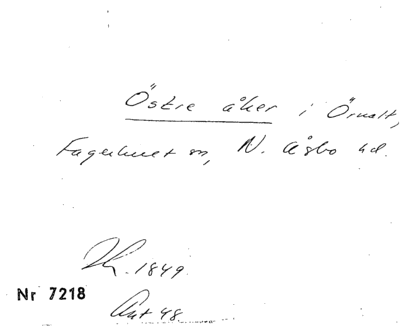 Östre åker i Örnalt,
Fagerhult sn, N. Åsbo hd.
Kr. 1849
Nr 7218
Ant 48